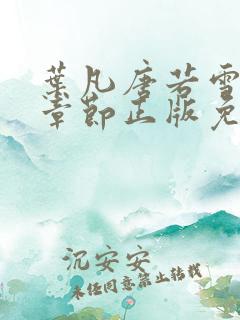 葉凡唐若雪
章節正版免
沉安安
未经同意禁止转载